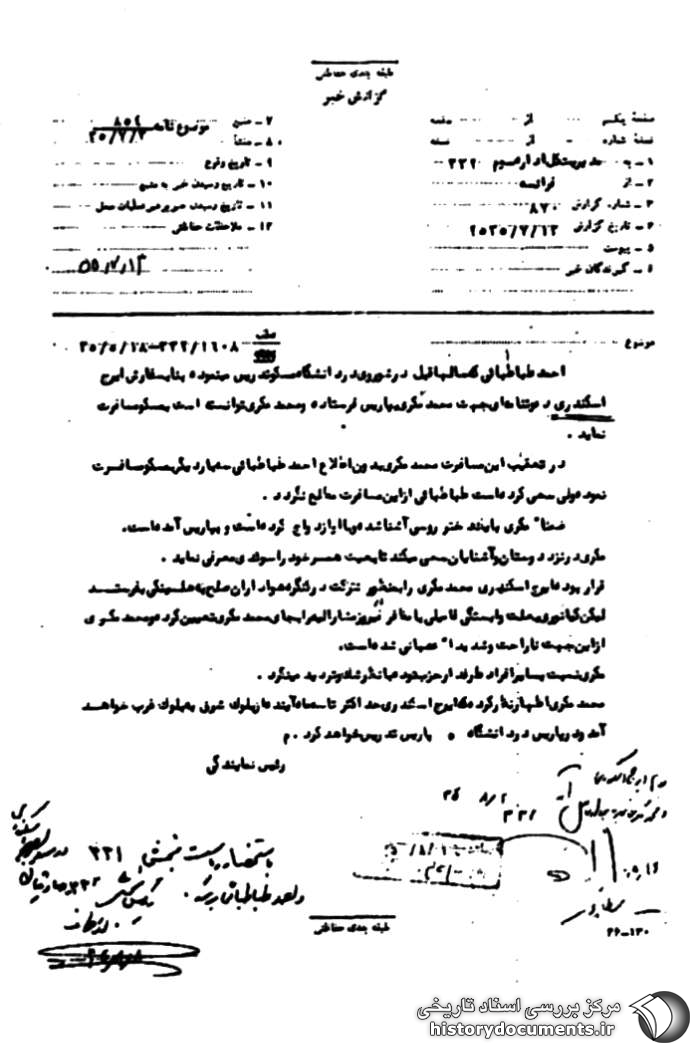 طبقه بندی حفاظتی
گزارش خبر
صفحهٔ یکم از صفحه
نسخهٔ شماره از نسخه
۱ - به مدیریت کل اداره سیم ۳۳۲
۲ - از فرانسه
۳ - شماره گزارش ۸۷۰
۴ - تاریخ گزارش ۲۵۳۵/۷/۱۳
۵ - پیوست
۶ - گیرندگان خبر
۷ - منبع موضوع نامه ۸۵۹
۸ - منشأ ۳۵/۷/۷
۹ - تاریخ وقوع
۱۰ - تاریخ رسیدن خبر به منبع
۱۱ - تاریخ رسیدن خبر به رهبر عملیات محل
۱۲ - ملاحظات حفاظتی
۵۵/۷/۱۴
موضوع عطف ۳۳۲/۱۶۰۸ - ۳۵/۵/۱۸
احمد طباطبائی که سالها قبل در شوروی در دانشگاه مسکو تدریس مینمود بنا بسفارش ایرج
اسکندری دعوتنامه‌ای جهت محمد مکری بپاریس فرستاده و محمد مکری توانسته است بمسکو مسافرت
نماید .
در تعقیب این مسافرت محمد مکری بدون اطلاع احمد طباطبائی سه بار دیگر بمسکو مسافرت
نموده ولی سعی کرده است طباطبائی از این مسافرت مطلع نگردد .
ضمناً مکری با یک دختر روسی آشنا شده و با او ازدواج کرده است و بپاریس آمده است.
مکری در نزد دوستان و آشنایان سعی میکند تابعیت همسر خود را سوئدی معرفی نماید .
قرار بوده ایرج اسکندری محمد مکری را بمنظور شرکت در کنگره هواداران صلح به هلسینکی بفرستد
لیکن کیانوری بعلت وابستگی فامیلی با مظفر فیروز مشارالیه را بجای محمد مکری تعیین کرده و محمد مکری
از این جهت ناراحت و شدیداً عصبانی شده است.
مکری نسبت بسایر افراد طرفدار حزب توده با نظر شک و تردید مینگرد .
محمد مکری اظهار نظر کرده که ایرج اسکندری حداکثر تا سه ماه آینده از بلوک شرق به بلوک غرب خواهد
آمد و در پاریس در دانشگاه ۰ پاریس تدریس خواهد کرد . م
رئیس نمایندگی
۳۵/۸/۲
۳۳۲
باستحضار ریاست بخش ۳۳۱
واحد طباطبائی برسد .
طبقه بندی حفاظتی
۲۶-۱۳۰
مرکز بررسی اسناد تاریخی
historydocuments.ir